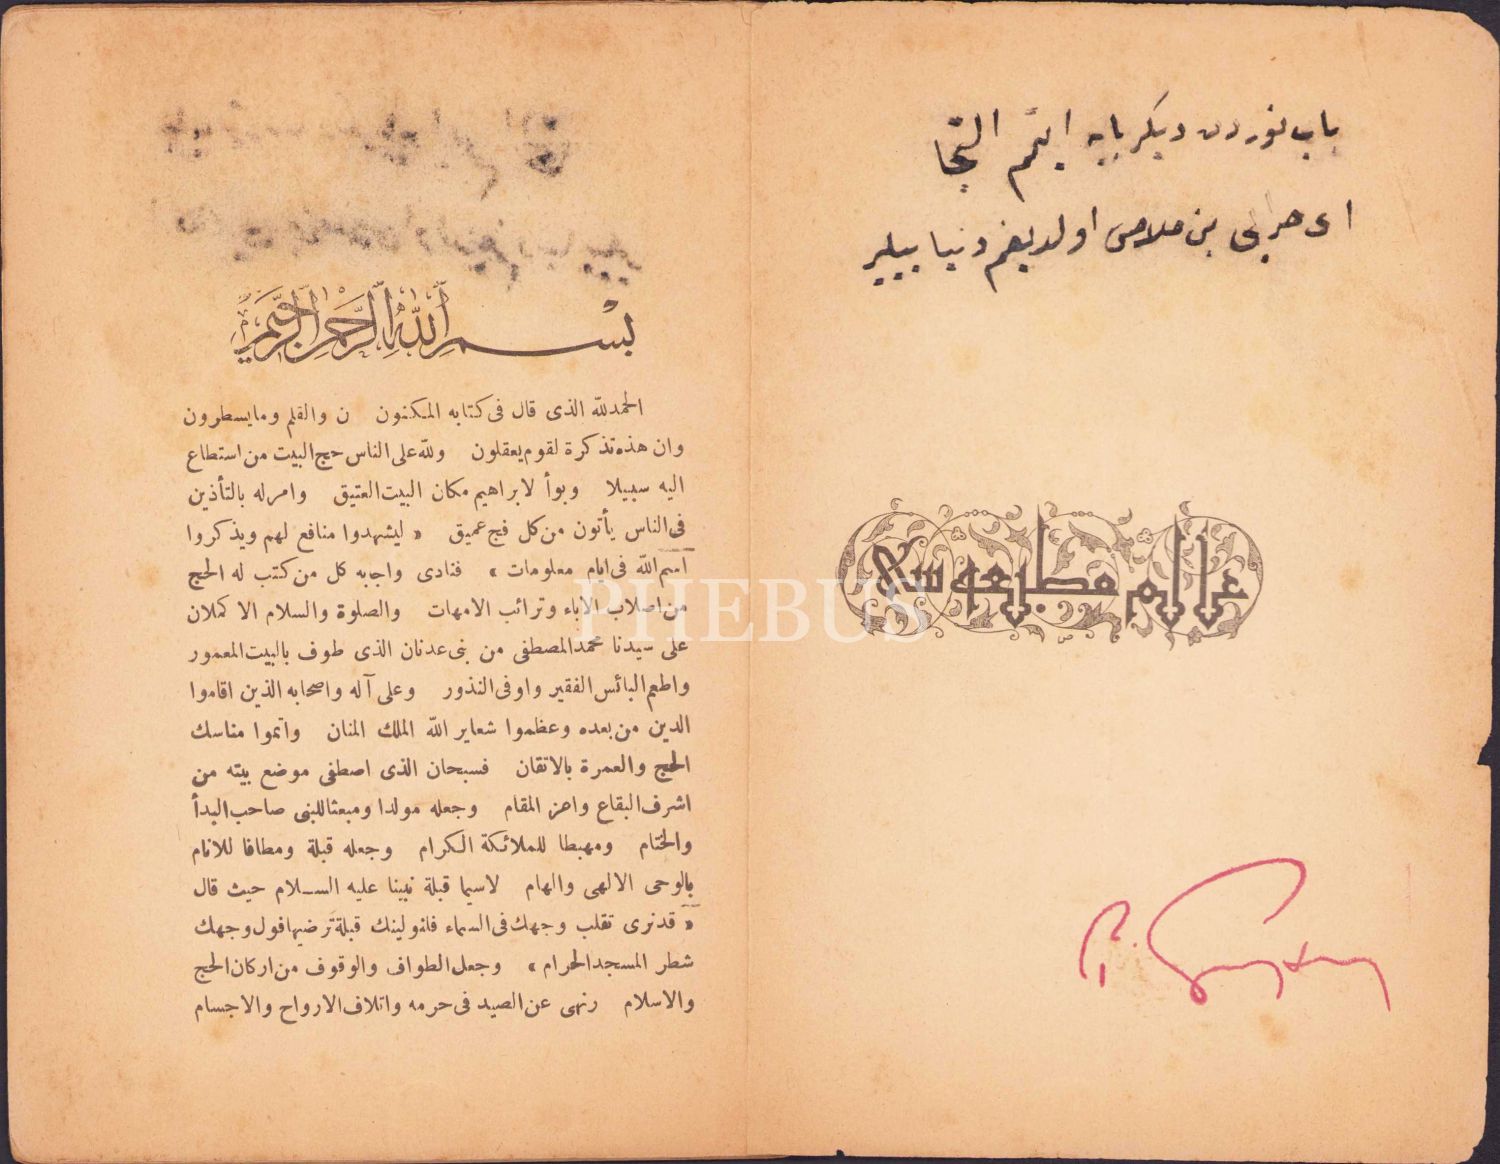 باب نوردن دیکر بابه ایتمم التجا
ای حرابی بن ملامی اولدیغم دنیا بیلیر
عالم مطبعه سی
PHEBUS
بسم الله الرحمن الرحيم
الحمدلله الذى قال فى كتابه المكنون ن والقلم ومايسطرون
وان هذه تذكرة لقوم يعقلون ولله على الناس حج البيت من استطاع
اليه سبيلا وبوأ لابراهيم مكان البيت العتيق وامرله بالتأذين
فى الناس يأتون من كل فج عميق « ليشهدوا منافع لهم ويذكروا
اسم الله فى ايام معلومات » فنادى واجابه كل من كتب له الحج
من اصلاب الآباء وترائب الامهات والصلوة والسلام الاكملان
على سيدنا محمد المصطفى من بنى عدنان الذى طوف بالبيت المعمور
واطعم البائس الفقير واوفى النذور وعلى آله واصحابه الذين اقاموا
الدين من بعده وعظموا شعاير الله الملك المنان واتموا مناسك
الحج والعمرة بالاتقان فسبحان الذى اصطفى موضع بيته من
اشرف البقاع واعز المقام وجعله مولدا ومبعثا للنبى صاحب البدأ
والختام ومهبطا للملائكة الكرام وجعله قبلة ومطافا للانام
بالوحى الالهى والهام لاسيما قبلة نبينا عليه السلام حيث قال
« قدنرى تقلب وجهك فى السماء فلنولينك قبلة ترضيها فول وجهك
شطر المسجد الحرام » وجعل الطواف والوقوف من اركان الحج
والاسلام ونهى عن الصيد فى حرمه واتلاف الارواح والاجسام